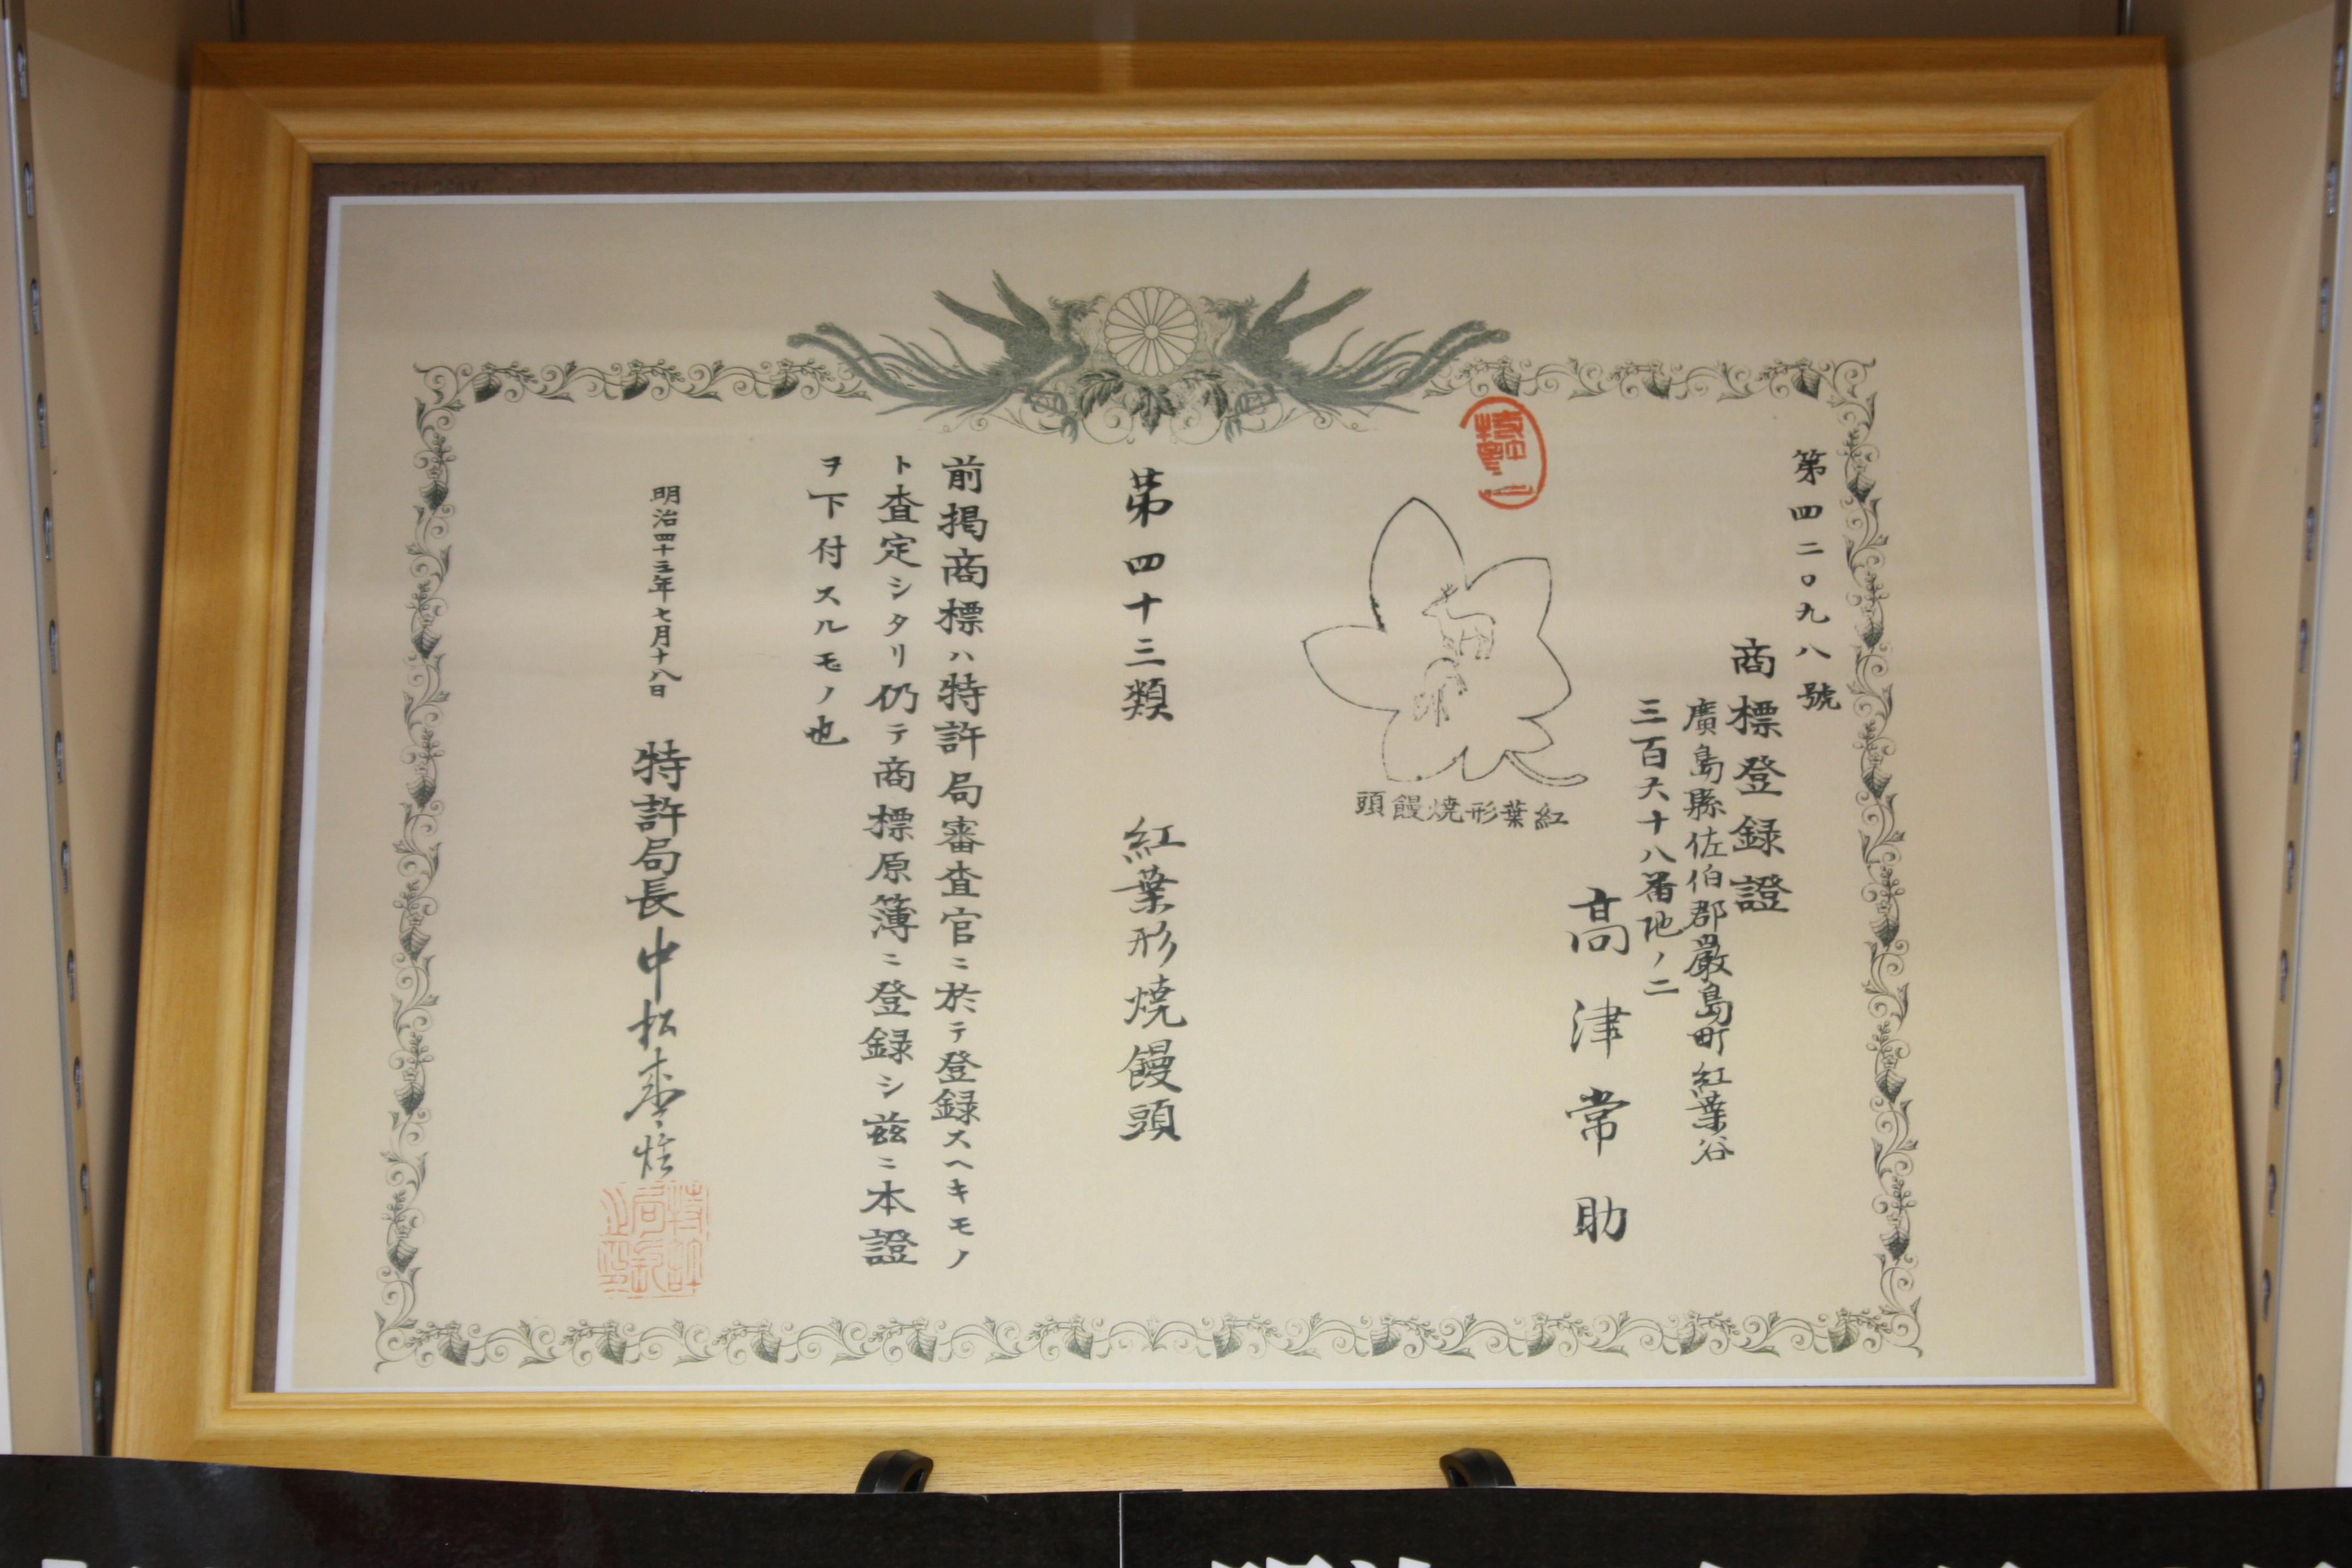 第四二〇九八號
商標登録證
廣島縣佐伯郡嚴島町紅葉谷
三百六十八番地ノ二
髙津常助
紅葉形焼饅頭
第四十三類 紅葉形焼饅頭
前掲商標ハ特許局審査官ニ於テ登録スヘキモノ
ト査定シタリ仍テ商標原簿ニ登録シ茲ニ本證
ヲ下付スルモノ也
明治四十三年七月十八日 特許局長中松